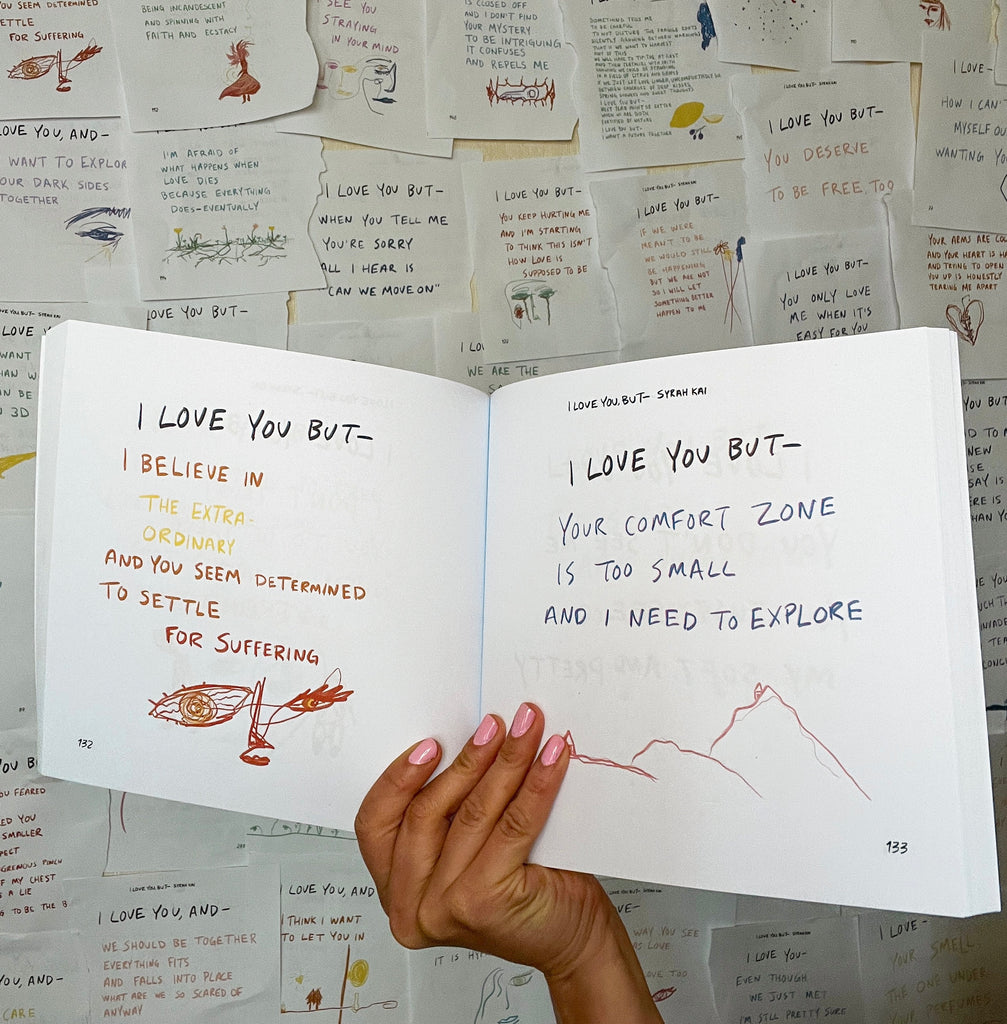 YOU SEEM DETERMINED
SETTLE
FOR SUFFERING
BEING INCANDESCENT
AND SPINNING WITH
FAITH AND ECSTACY
112
SEE YOU
STRAYING
IN YOUR MIND
IS CLOSED OFF
AND I DON'T FIND
YOUR MYSTERY
TO BE INTRIGUING
IT CONFUSES
AND REPELS ME
SOMETHING TELLS ME
TO BE CAREFUL
I LOVE YOU BUT-
I WANT A FUTURE TOGETHER
I LOVE YOU BUT- SYRAH KAI
I LOVE YOU BUT-
YOU DESERVE
TO BE FREE, TOO
I LOVE-
HOW I CAN
MYSELF OU
WANTING YO
LOVE YOU, AND-
WANT TO EXPLOR
OUR DARK SIDES
TOGETHER
I'M AFRAID OF
WHAT HAPPENS WHEN
LOVE DIES
BECAUSE EVERYTHING
DOES-EVENTUALLY
I LOVE YOU BUT-
WHEN YOU TELL ME
YOU'RE SORRY
ALL I HEAR IS
"CAN WE MOVE ON"
I LOVE YOU BUT-
YOU KEEP HURTING ME
AND I'M STARTING
TO THINK THIS ISN'T
HOW LOVE IS
SUPPOSED TO BE
I LOVE YOU BUT- SYRAH KAI
I LOVE YOU BUT-
IF WE WERE
MEANT TO BE
WE WOULD STILL
BE HAPPENING
BUT WE ARE NOT
SO I WILL LET
SOMETHING BETTER
HAPPEN TO ME
I LOVE YOU BUT-
YOU ONLY LOVE
ME WHEN IT'S
EASY FOR YOU
YOUR ARMS ARE COL
AND YOUR HEART IS HA
AND TRYING TO OPEN
YOU UP IS HONESTLY
TEARING ME APART
LOVE YOU BUT-
I LO
WE ARE THE
LOVE Y
WANT
HAN W
N BE
3D
I LOVE YOU BUT-
I BELIEVE IN
THE EXTRA-
ORDINARY
AND YOU SEEM DETERMINED
TO SETTLE
FOR SUFFERING
132
I LOVE YOU, BUT- SYRAH KAI
I LOVE YOU BUT-
YOUR COMFORT ZONE
IS TOO SMALL
AND I NEED TO EXPLORE
133
YOU BUT
NEW
SAY IS
HAN YO
OU B
OU FEARED
ED YOU
SMALLER
PECT
F MY CHEST
S A LIE
G TO BE THE B
YOU, AND-
CARE
I LOVE YOU BUT- SYRAH KAI
I LOVE YOU, AND-
WE SHOULD BE TOGETHER
EVERYTHING FITS
AND FALLS INTO PLACE
WHAT ARE WE SO SCARED OF
ANYWAY
I LOVE YOU, AND
I THINK I WANT
TO LET YOU IN
IT IS
VE-
WAY YOU SEE
AS LOVE
AVE TOO
I LOVE YOU BUT- SYRAH KAI
I LOVE YOU-
EVEN THOUGH
WE JUST MET
I'M STILL PRETTY SURE
I LOVE-
YOUR SMELL
THE ONE UNDER
YOUR PERFUMES